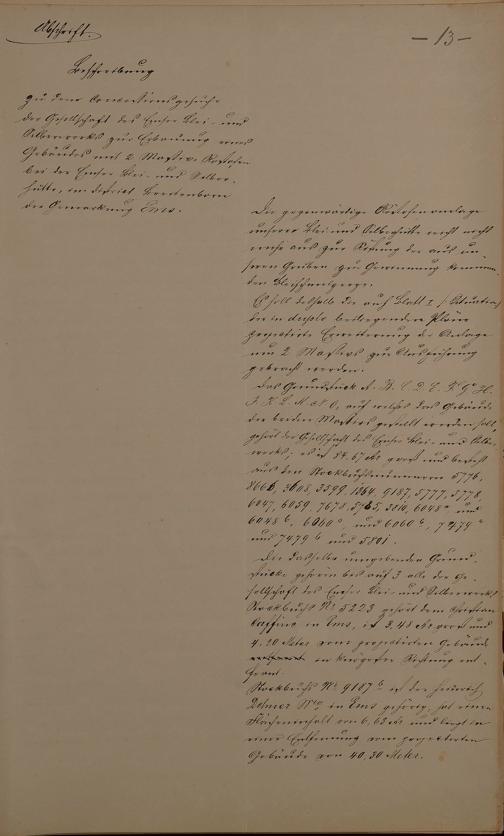 Abschrift.
— 13 —
Beschreibung
zu dem Concessionsgesuche
der Gesellschaft des Emser Blei- und
Silberwerks zur Erbauung eines
Gebäudes mit 2 Röstofen
bei der Emser Blei- und Silber-
hütte, im District
der Gemarkung Ems.
Die gegenwärtige Röstofenanlage
unserer Blei- und Silberhütte reicht nicht
mehr aus zur Röstung der aus un-
seren Gruben zur Gewinnung kommen-
den
Es soll deshalb die auf Blatt I
der in duplo beiliegenden Pläne
projectirte Erweiterung der Anlage
um 2 zur Ausführung
gebracht werden.
Das Grundstück A. B. C. D. E. F. G. H.
J. K. L. M. N. O, auf welches das Gebäude
der beiden gestellt werden soll,
gehört der Gesellschaft des Emser Blei- und Silber-
werks; es ist 84,67 groß und besteht
aus den Stockbuchsnummern 5776,
3608, 3599, 1864, 9187, 5777, 5778,
6047, 6059, 7678, 6048 a und
6048 b, 6060 a, und 6060 b, 7479 a
und 7479 b und 5801.
Die dasselbe umgebenden Grund-
stücke gehören bis auf 3 alle der Ge-
sellschaft des Emser Blei- und Silberwerks
Stockbuchs Nr. 5223 gehört dem
in Ems, ist 3,48 groß und
4,20 Meter vom projectirten Gebäude
in Richtung ent-
fernt.
Stockbuchs Nr. 9187 b ist der Heinrich
in Ems gehörig, hat einen
Flächeninhalt von 6,63 und liegt in
einer Entfernung vom projectirten
Gebäude von 40,30 Meter.